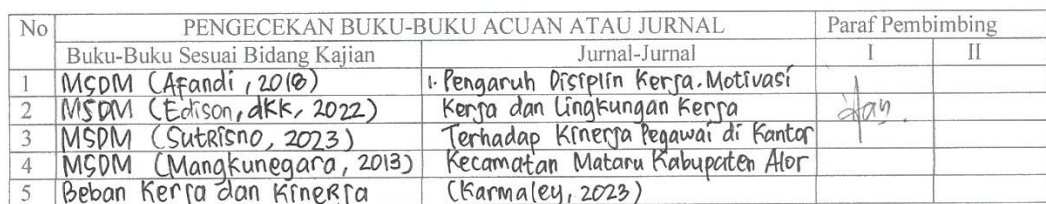 No PENGECEKAN BUKU-BUKU ACUAN ATAU JURNAL Paraf Pembimbing
Buku-Buku Sesuai Bidang Kajian Jurnal-Jurnal I II
1 MSDM (Afandi, 2018) 1. Pengaruh Disiplin Kerja, Motivasi
2 MSDM (Edison, dkk, 2022) Kerja dan Lingkungan Kerja
3 MSDM (Sutrisno, 2023) Terhadap Kinerja Pegawai di Kantor
4 MSDM (Mangkunegara, 2013) Kecamatan Mataru Kabupaten Alor
5 Beban Kerja dan Kinerja (Karmaley, 2023)